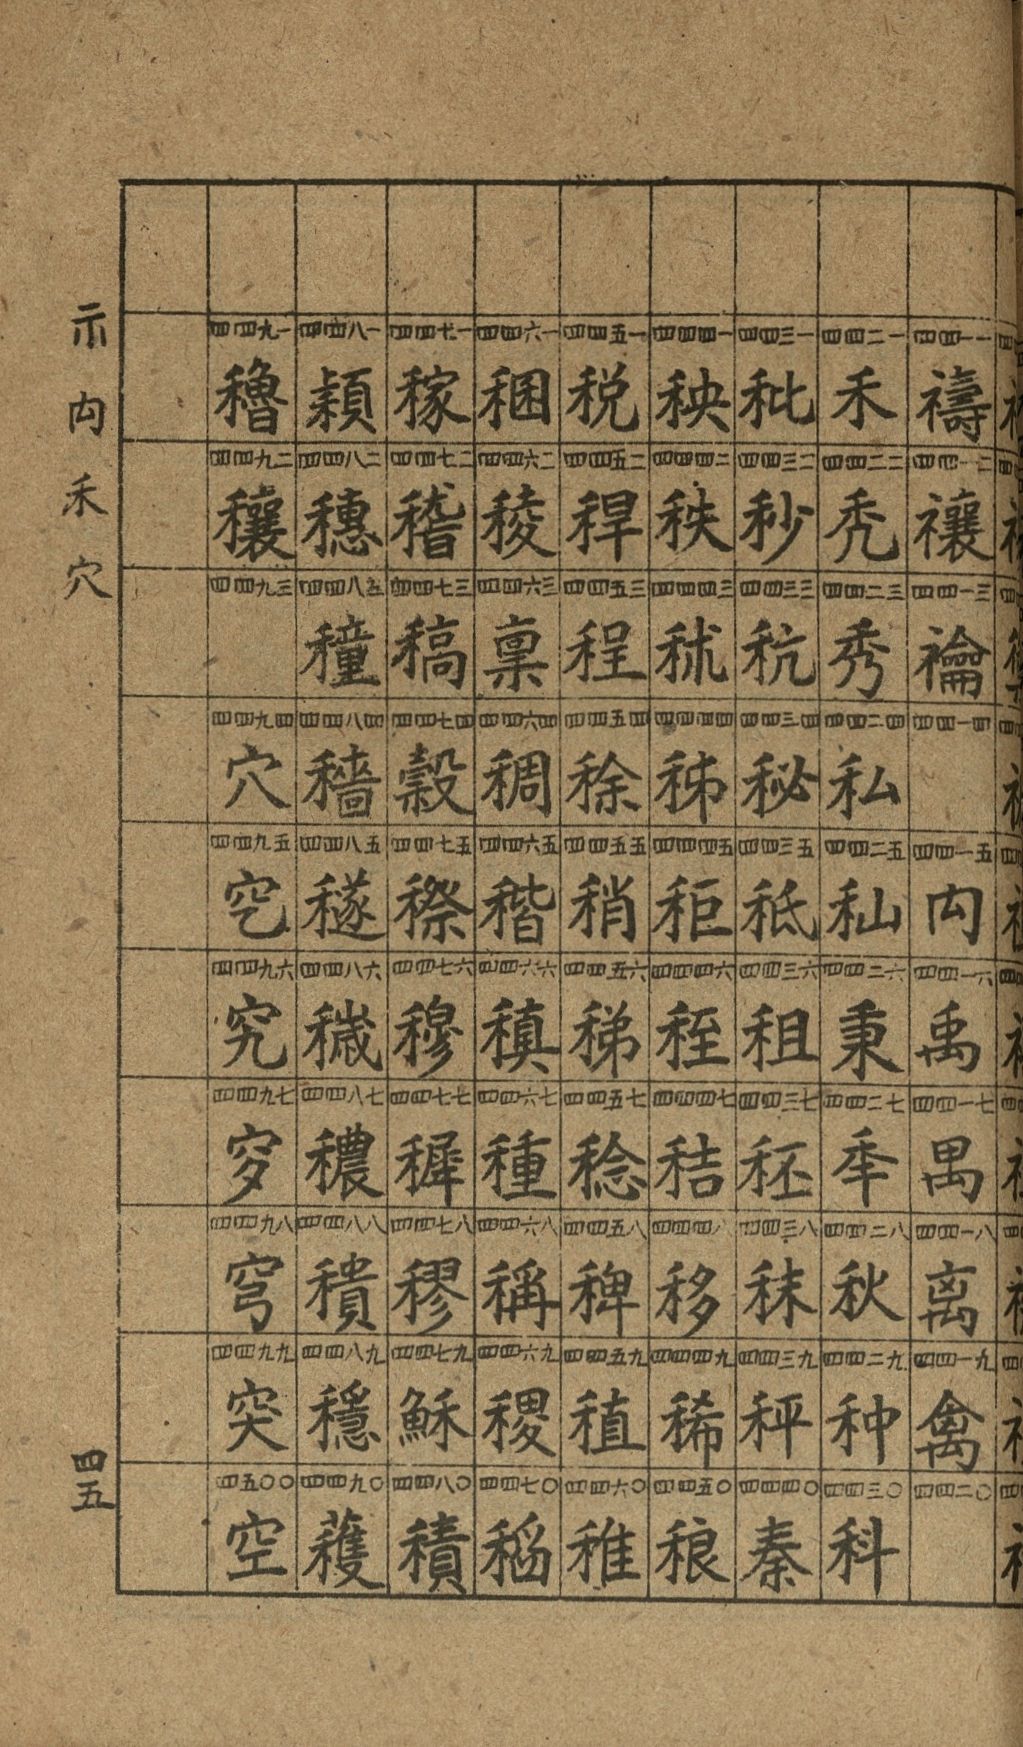 四四一一 禱
四四一二 禳
四四一三 禴
四四一四
四四一五 禸
四四一六 禹
四四一七 禺
四四一八 离
四四一九 禽
四四二〇
四四二一 禾
四四二二 秃
四四二三 秀
四四二四 私
四四二五 秈
四四二六 秉
四四二七 秊
四四二八 秋
四四二九 种
四四三〇 科
四四三一 秕
四四三二 秒
四四三三 秔
四四三四 秘
四四三五 秪
四四三六 租
四四三七 秠
四四三八 秣
四四三九 秤
四四四〇 秦
四四四一 秧
四四四二 秩
四四四三 秫
四四四四 秭
四四四五 秬
四四四六 秷
四四四七 秸
四四四八 移
四四四九 稀
四四五〇 稂
四四五一 税
四四五二 稈
四四五三 程
四四五四 稌
四四五五 稍
四四五六 稊
四四五七 稔
四四五八 稗
四四五九 稙
四四六〇 稚
四四六一 稇
四四六二 稜
四四六三 稟
四四六四 稠
四四六五 稭
四四六六 稹
四四六七 種
四四六八 稱
四四六九 稷
四四七〇 稻
四四七一 稼
四四七二 稽
四四七三 稿
四四七四 穀
四四七五 穄
四四七六 穆
四四七七 穉
四四七八 穋
四四七九 穌
四四八〇 積
四四八一 穎
四四八二 穗
四四八三 穜
四四八四 穡
四四八五 穟
四四八六 穢
四四八七 穠
四四八八
四四八九 穩
四四九〇 穫
四四九一 穭
四四九二 穰
四四九三
四四九四 穴
四四九五 穵
四四九六 究
四四九七 穸
四四九八 穹
四四九九 突
四五〇〇 空
示禸禾穴
四五